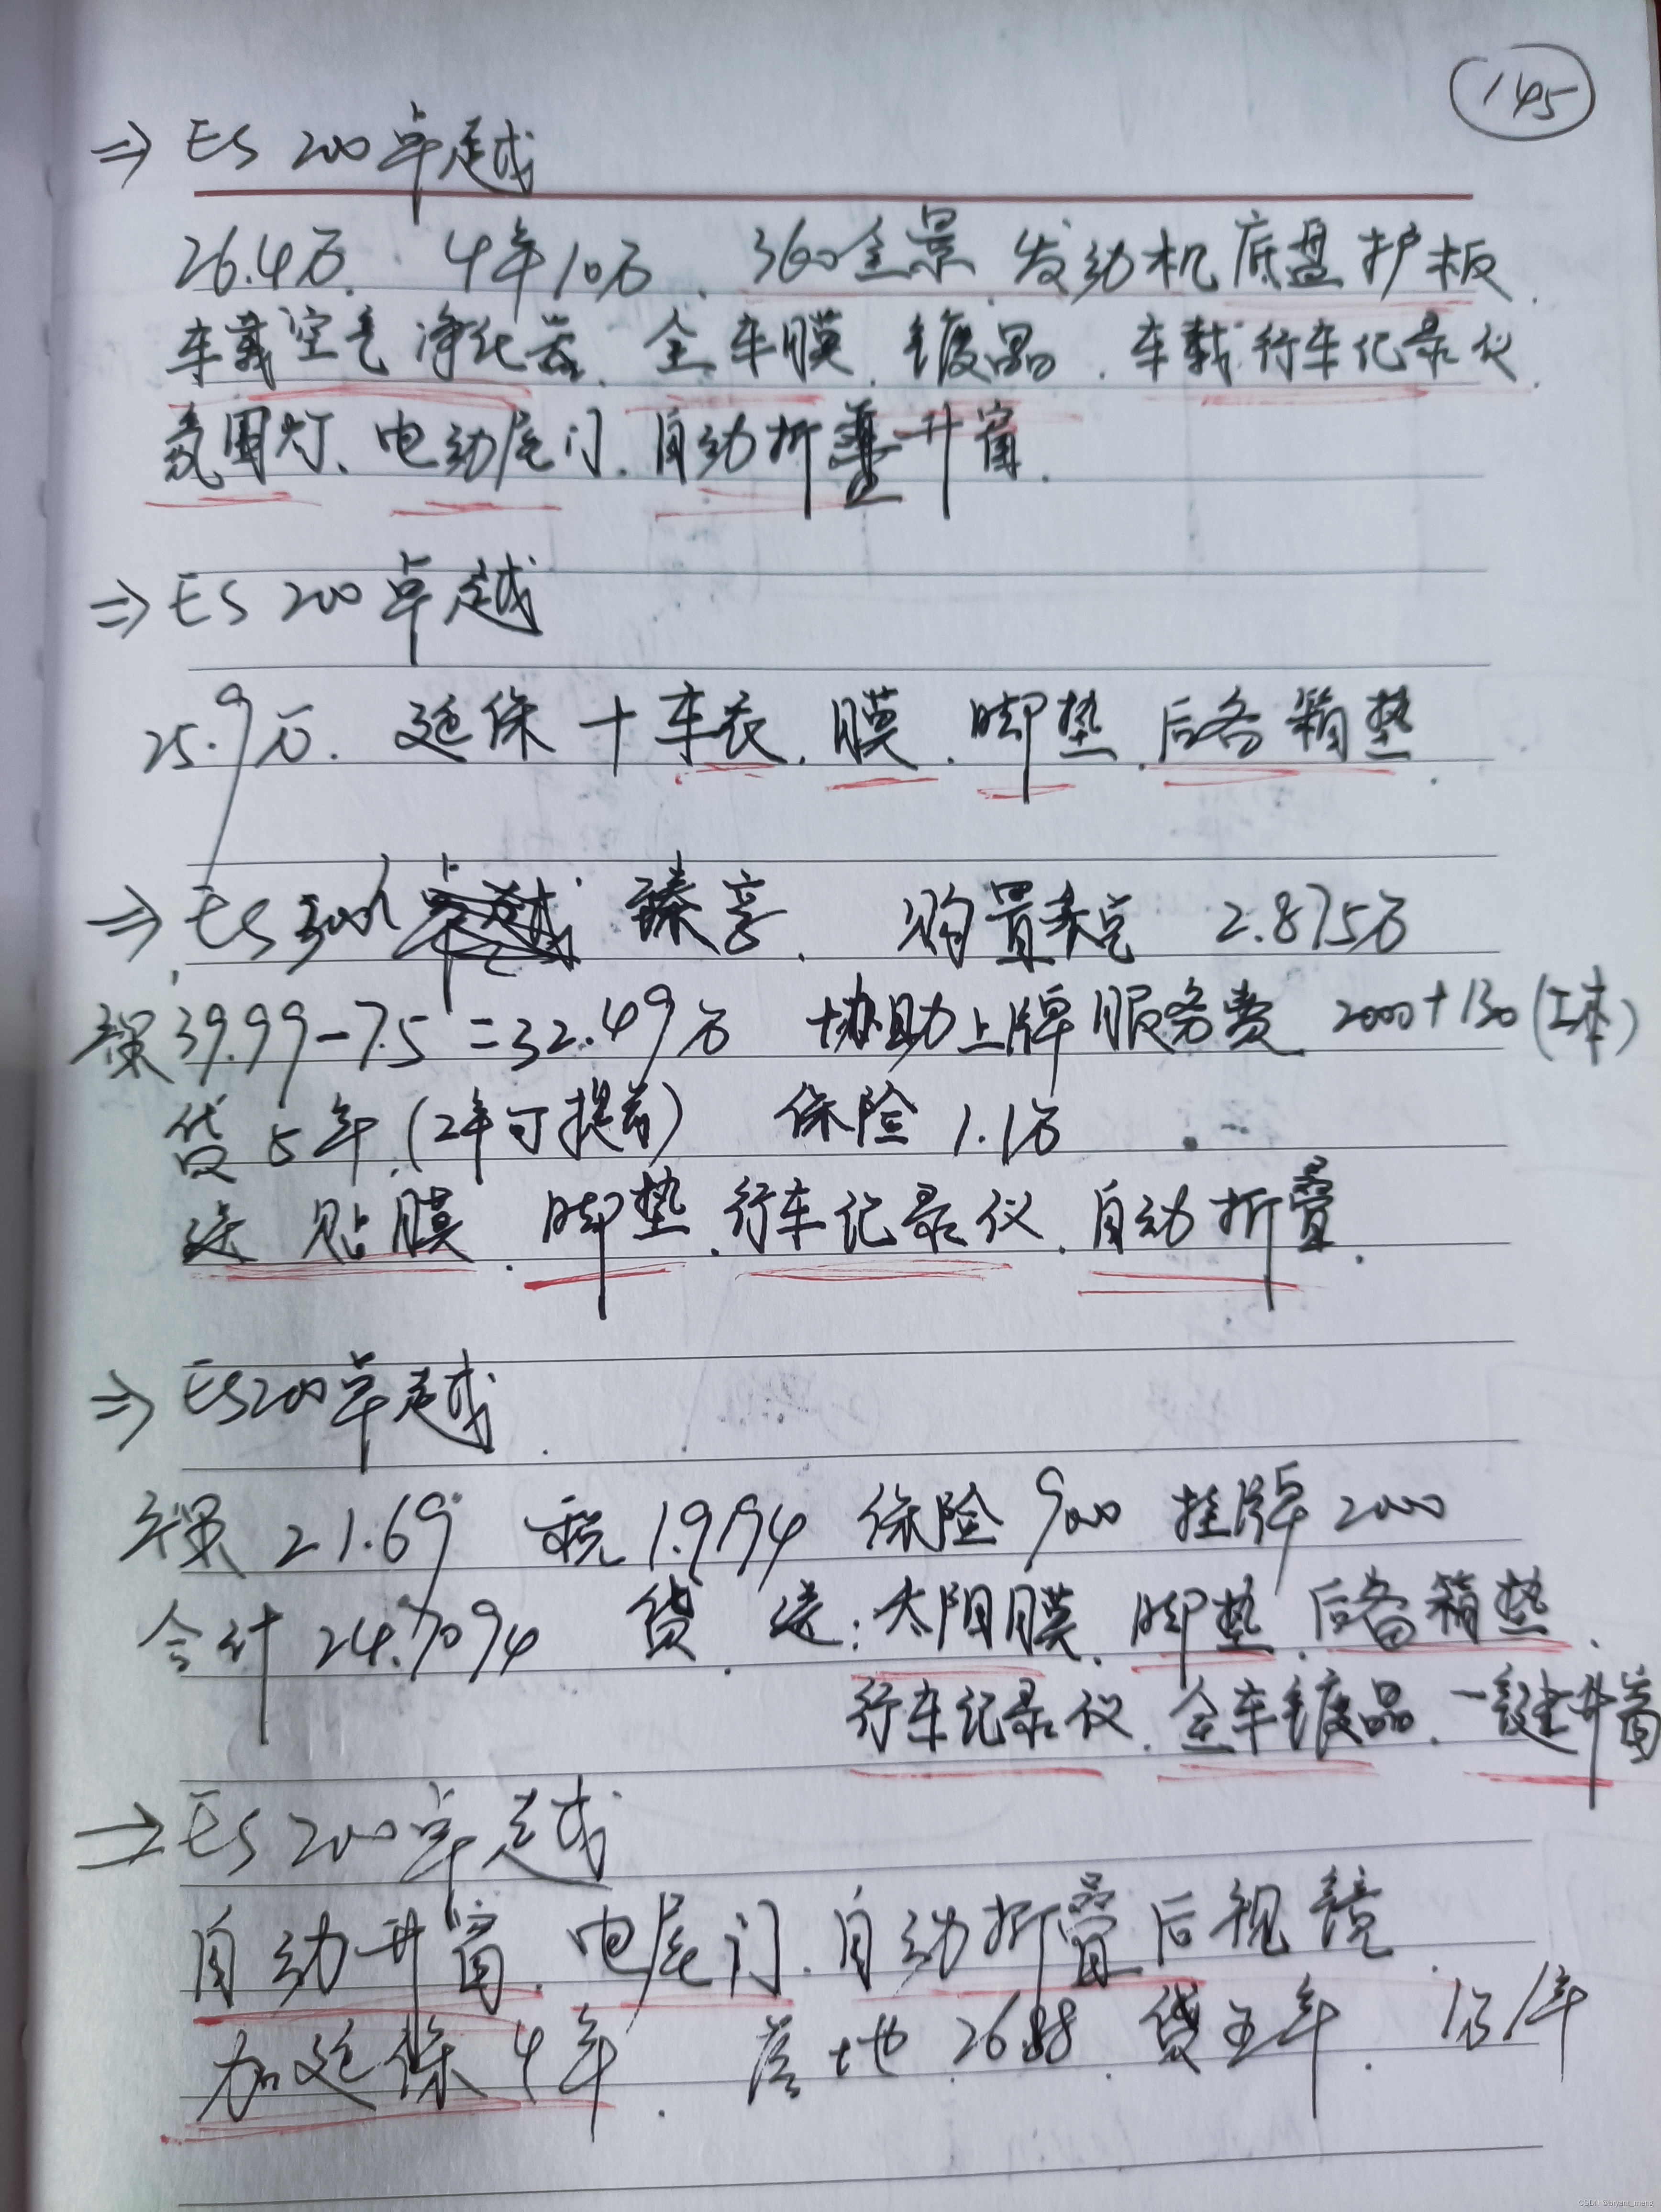 145
⇒ ES 200 卓越
26.4万. 4年10万、360全景.发动机底盘护板.
车载空气净化器.全车膜.镀晶.车载行车记录仪.
氛围灯、电动尾门.自动折叠升窗.
⇒ ES 200 卓越
25.9万. 延保+车衣.膜.脚垫.后备箱垫.
⇒ ES 300h 臻享. 购置税 2.875万
裸 39.99-7.5=32.49万 协助上牌服务费 2000+130(工本)
贷5年.(2年可提前) 保险 1.1万
送 贴膜.脚垫.行车记录仪.自动折叠.
⇒ ES200卓越.
裸 21.69 税 1.9194 保险 9000 挂牌 2000
合计 24.7094 贷.送:太阳膜.脚垫.后备箱垫.
行车记录仪.全车镀晶.一键升窗
⇒ ES 200 卓越
自动升窗.电尾门.自动折叠后视镜.
加延保4年. 落地 26.88 贷五年. 1万/年
CSDN @bryant_meng